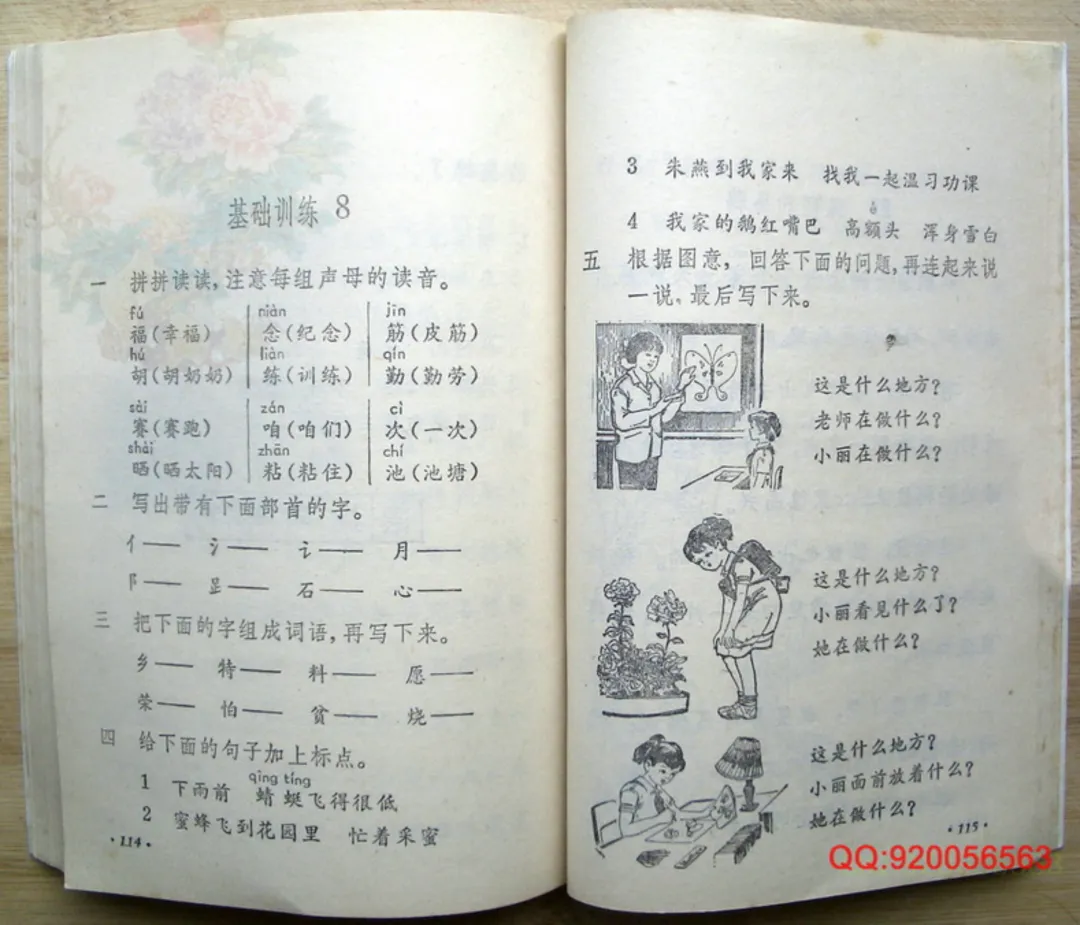 基础训练 8
一 拼拼读读，注意每组声母的读音。
fú niàn jīn
福(幸福) 念(纪念) 筋(皮筋)
hú liàn qín
胡(胡奶奶) 练(训练) 勤(勤劳)
sài zán cì
赛(赛跑) 咱(咱们) 次(一次)
shài zhān chí
晒(晒太阳) 粘(粘住) 池(池塘)
二 写出带有下面部首的字。
亻—— 氵—— 讠—— 月——
阝—— 𧾷—— 石—— 心——
三 把下面的字组成词语，再写下来。
乡—— 特—— 料—— 愿——
荣—— 怕—— 贫—— 烧——
四 给下面的句子加上标点。
qīng tíng
1 下雨前 蜻蜓飞得很低
2 蜜蜂飞到花园里 忙着采蜜
·114·
3 朱燕到我家来 找我一起温习功课
4 我家的鹅红嘴巴 高额头 浑身雪白
五 根据图意，回答下面的问题，再连起来说
一说。最后写下来。
这是什么地方？
老师在做什么？
小丽在做什么？
这是什么地方？
小丽看见什么了？
她在做什么？
这是什么地方？
小丽面前放着什么？
她在做什么？
·115·
QQ:920056563